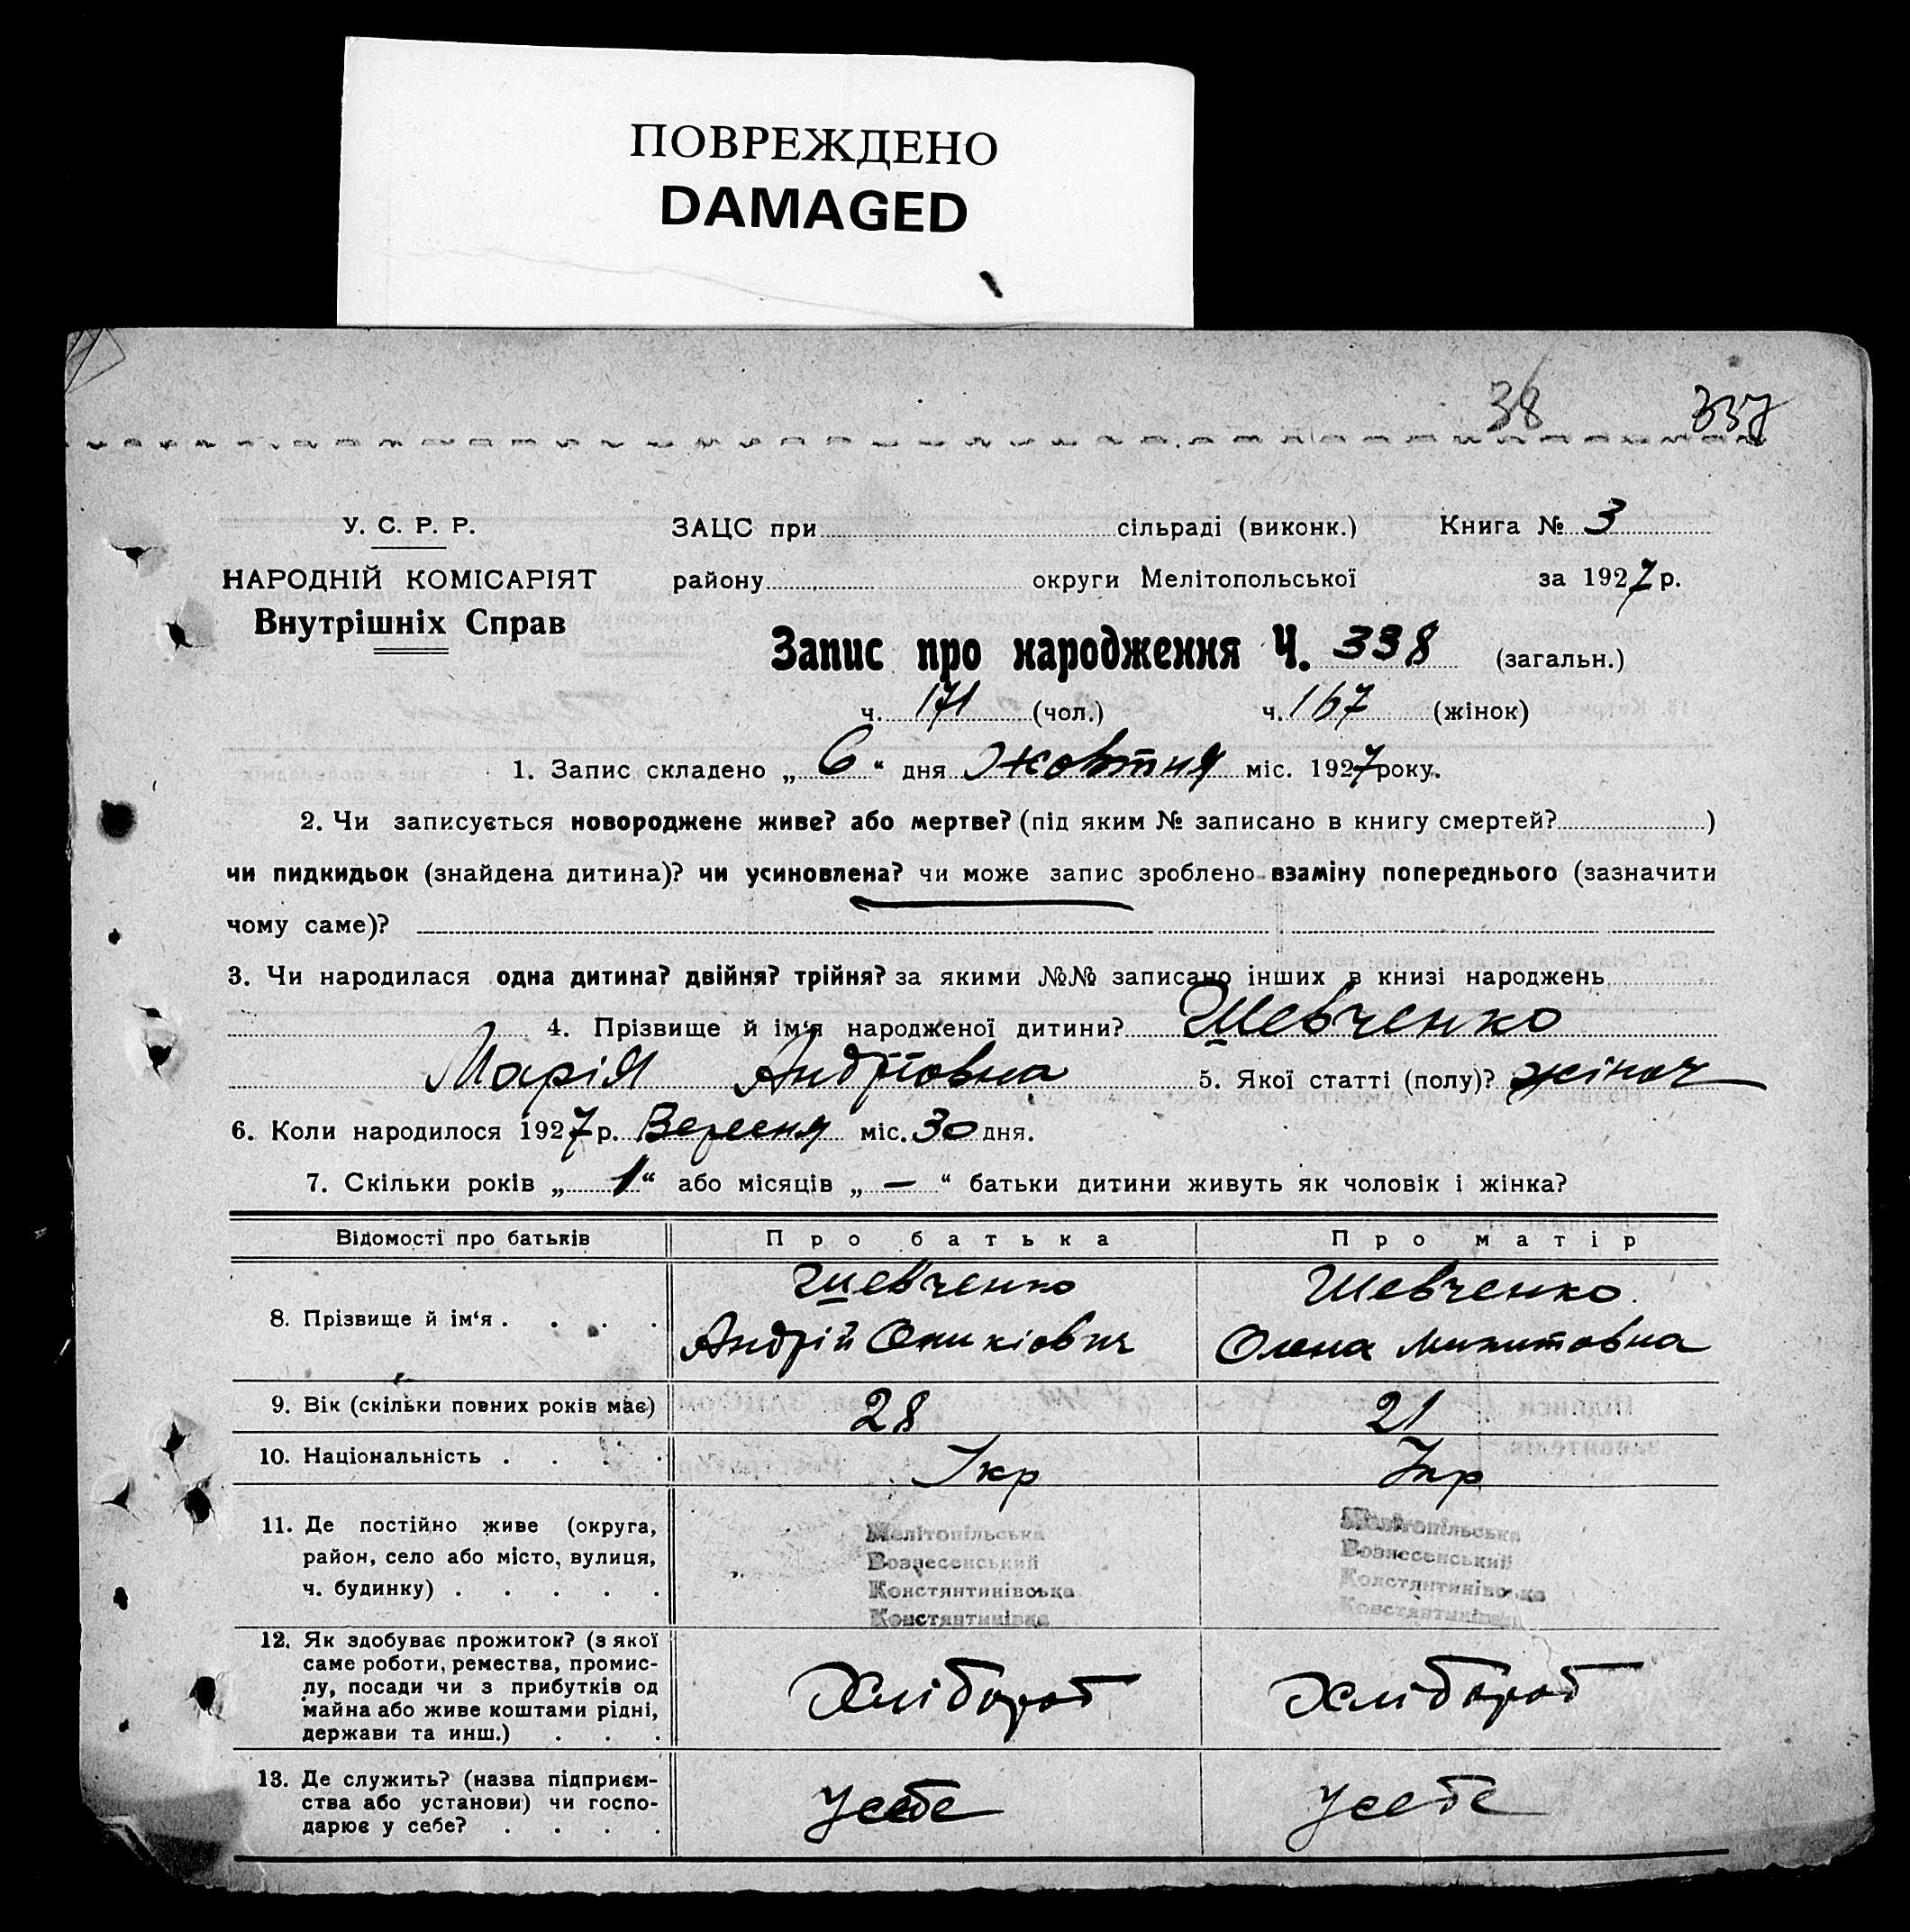 ПОВРЕЖДЕНО
DAMAGED
38 337
У. С. Р. Р.
НАРОДНІЙ КОМІСАРІЯТ
Внутрішніх Справ
ЗАЦС при сільраді (виконк.) Книга № 3
району округи Мелітопольської за 1927 р.
Запис про народження Ч. 338 (загальн.)
ч. 171 (чол.) ч. 167 (жінок)
1. Запис складено „ 6 “ дня Жовтня міс. 1927 року.
2. Чи записується новороджене живе? або мертве? (під яким № записано в книгу смертей? )
чи пидкидьок (знайдена дитина)? чи усиновлена? чи може запис зроблено взаміну попереднього (зазначити
чому саме)?
3. Чи народилася одна дитина? двійня? трійня? за якими №№ записано інших в книзі народжень
4. Прізвище й ім‘я народженої дитини? Шевченко
Марія Андріївна 5. Якої статті (полу)? жіноч
6. Коли народилося 1927 р. Вересня міс. 30 дня.
7. Скільки років „ 1 “ або місяців „ — “ батьки дитини живуть як чоловік і жінка?
Відомості про батьків Про батька Про матір
8. Прізвище й ім‘я . . . .
Шевченко
Андрій
Шевченко
Олена Микитовна
9. Вік (скільки повних років має) 28 21
10. Національність . . . . Укр Укр
11. Де постійно живе (округа,
район, село або місто, вулиця,
ч. будинку) . . . . .
Мелітопільська
Вознесенський
Констянтинівська
Констянтинівка
Мелітопільська
Вознесенський
Констянтинівська
Констянтинівка
12. Як здобуває прожиток? (з якої
саме роботи, ремества, промис-
лу, посади чи з прибутків од
майна або живе коштами рідні,
держави та инш.) . . .
Хлібороб Хлібороб
13. Де служить? (назва підприєм-
ства або установи) чи госпо-
дарює у себе? . . . .
Усебе Усебе